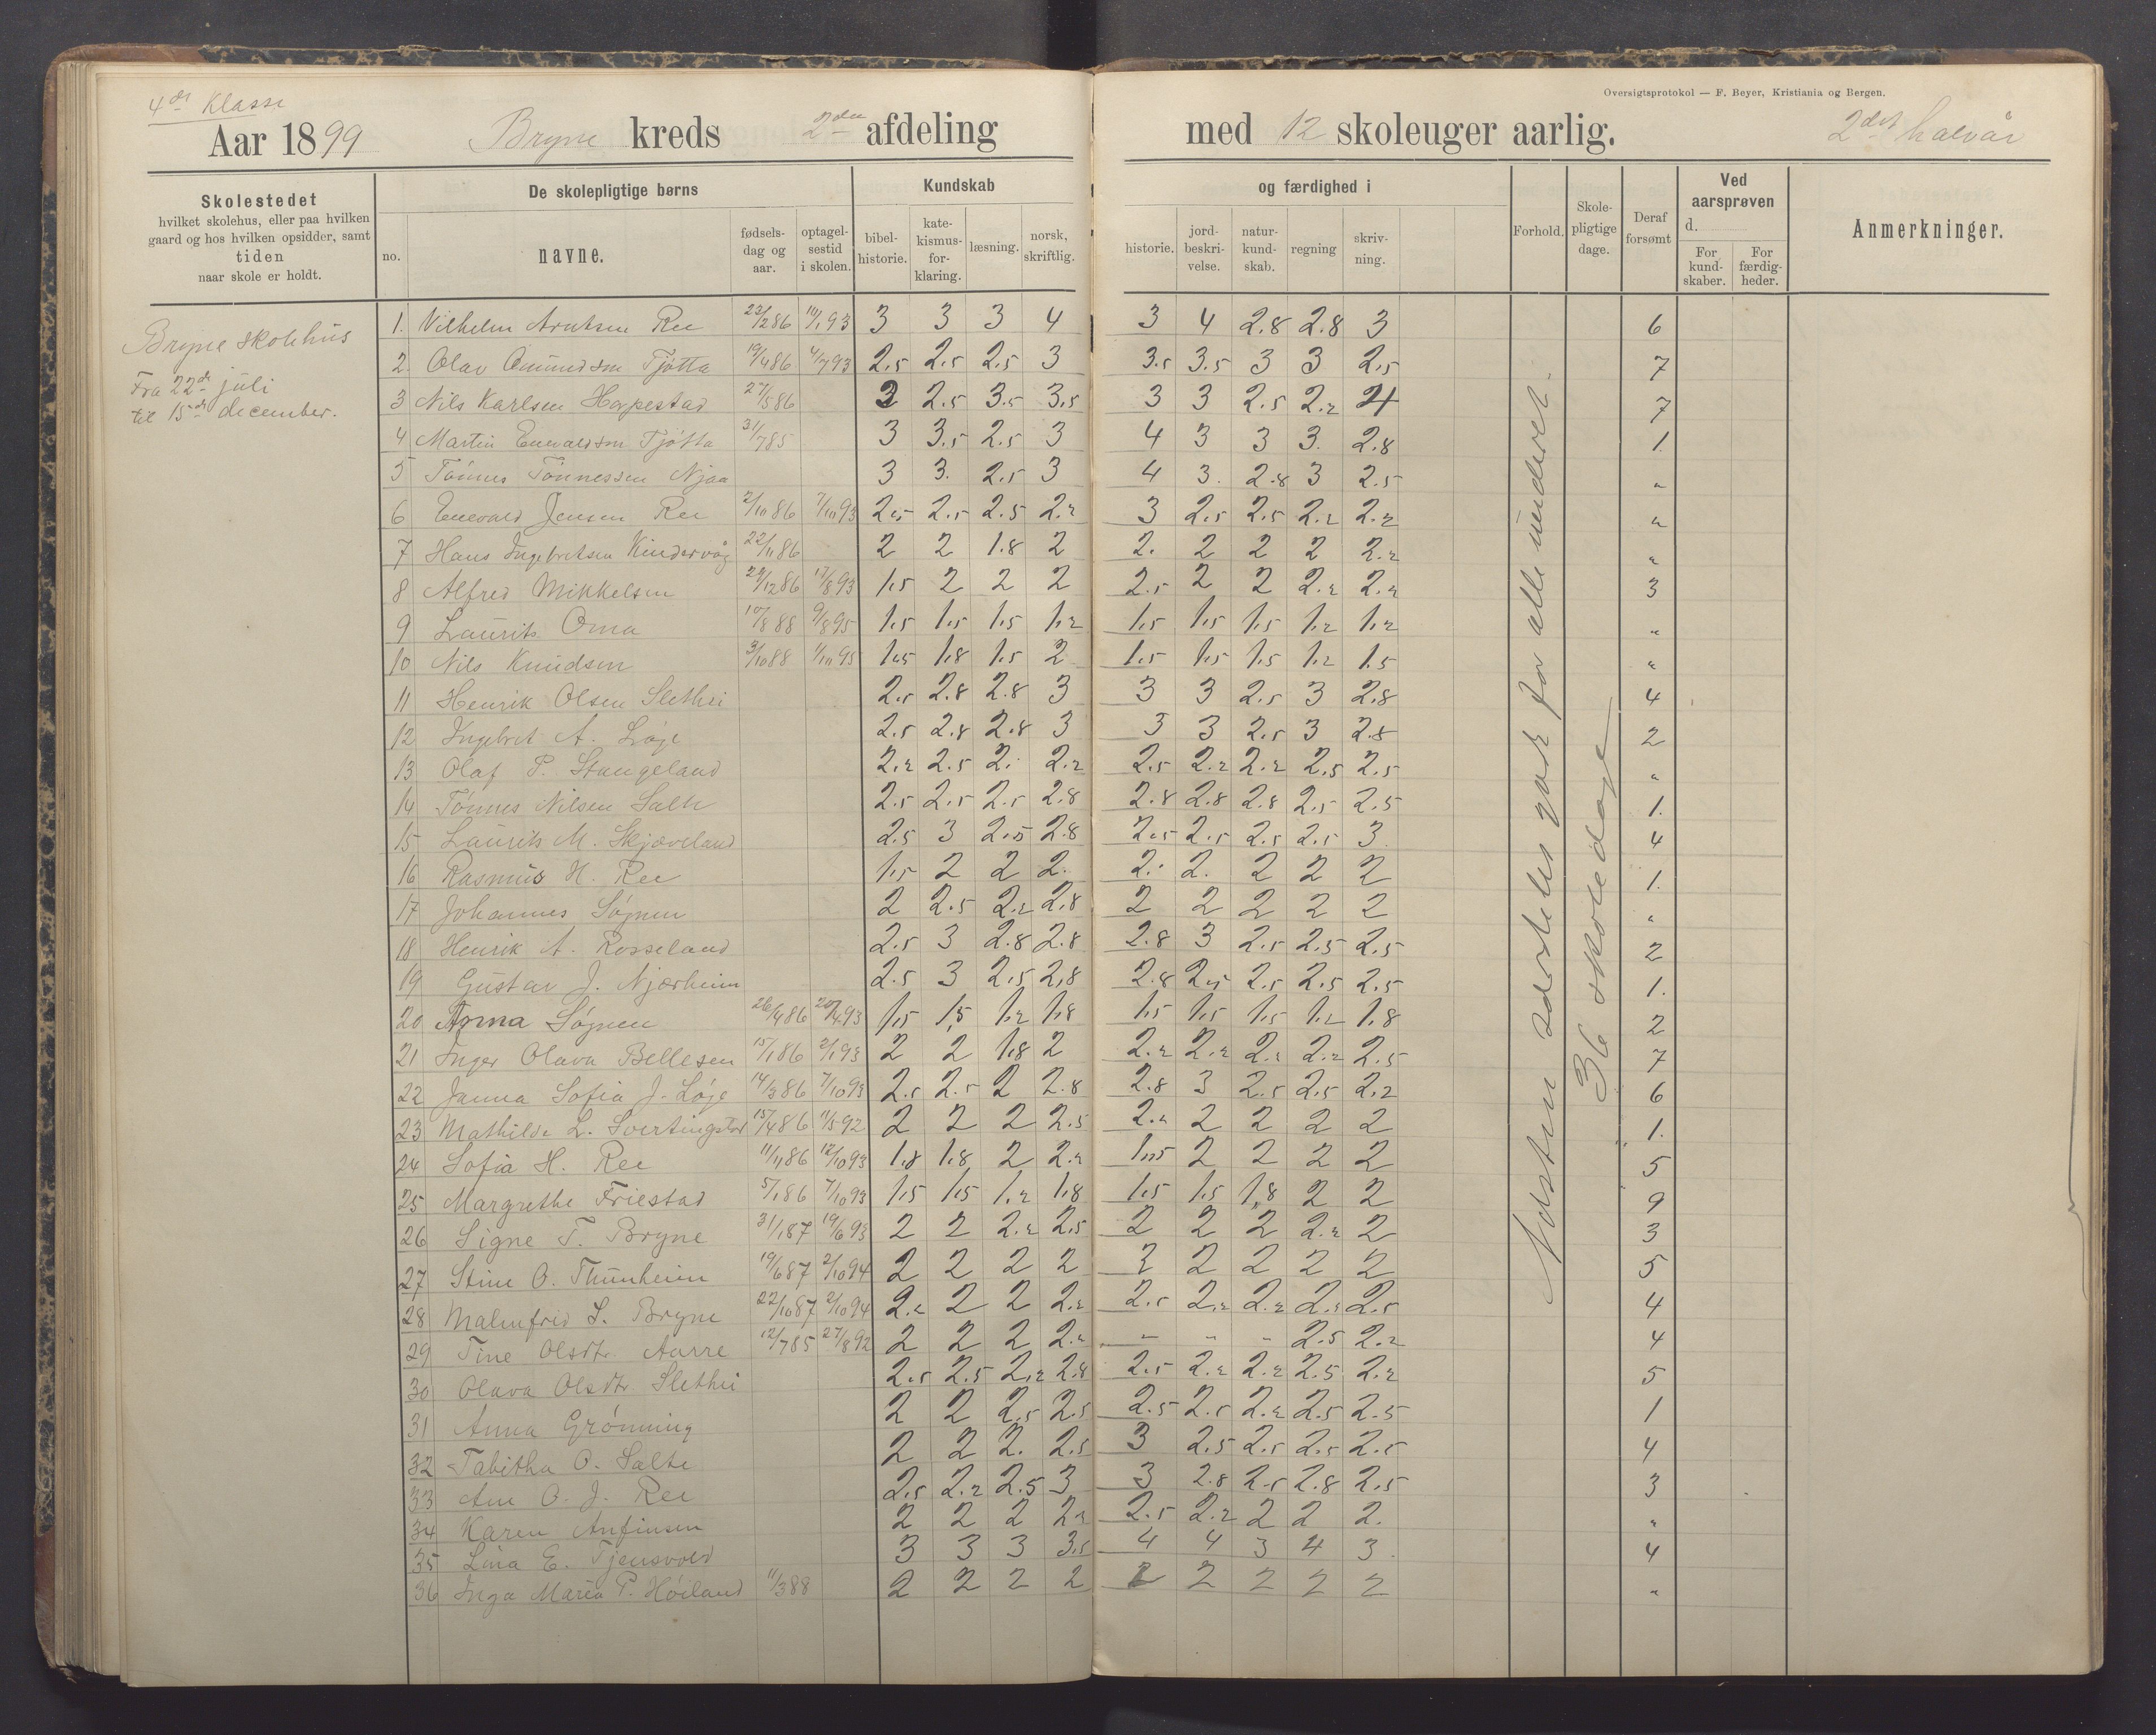 4de Klasse
Aar 1899 Bryne kreds 2den afdeling
Oversigtsprotokol — F. Beyer, Kristiania og Bergen.
med 12 skoleuger aarlig. 2det halvår
Skolestedet
hvilket skolehus, eller paa hvilken
gaard og hos hvilken opsidder, samt
tiden
naar skole er holdt.
De skolepligtige børns
no.
navne.
fødsels-
dag og
aar.
optagel-
sestid
i skolen.
Kundskab
bibel-
historie.
kate-
kismus-
for-
klaring.
læsning.
norsk,
skriftlig.
og færdighed i
historie.
jord-
beskri-
velse.
natur-
kund-
skab.
regning
skriv-
ning.
Forhold.
Skole-
pligtige
dage.
Deraf
forsømt
Ved
aarsprøven
d.
For
kund-
skaber.
For
færdig-
heder.
Anmerkninger.
Bryne skolehus
Fra 22de juli
til 15de december.
1. Vilhelm Ree 23/2 86 93 3 3 3 4 3 4 2.8 2.8 3 6
2. Olav Omundsen Tjøtta 19/4 86 4/7 93 2.5 2.5 2.5 3 3.5 3.5 3 3 2.5 7
3 Nils Karlsen Hapestad 27/5 86 3 2.5 3.5 3.5 3 3 2.5 2.2 4 7
4 Martin Enevaldsen Tjøtta 31/7 85 3 3.5 2.5 3 4 3 3 3. 2.8 1.
5 Tønnes Tønnessen Njaa 3 3. 2.5 3 4 3. 2.8 3 2.5 "
6 Enevald Jensen Ree 2/10 86 7/10 93 2.5 2.5 2.5 2.2 3 2.5 2.5 2.2 2.2 "
7 Hans Ingebretsen Kindervåg 22/11 86 2 2 1.8 2 2. 2 2 2 2.2 "
8 Alfred Mikkelsen 29/12 86 17/8 93 1.5 2 2 2 2.5 2 2 2.2 2.2 3
9 Laurits Oma 10/8 88 9/8 95 1.5 1.5 1.5 1.2 1.5 1.5 1.5 1.2 1.2 "
10 Nils Knudsen 3/10 88 1/10 95 1.5 1.8 1.5 2 1.5 1.5 1.5 1.2 1.5 "
11 Henrik Olsen Slethei 2.5 2.8 2.8 3 3 3 2.5 3 2.8 4
12 Ingebret A. Løge 2.5 2.8 2.8 3 3 3 2.5 3 2.8 2
13 Olaf P. Stangeland 2.2 2.5 2. 2.2 2.5 2.2 2.2 2.5 2.5 "
14 Tønnes Nilsen Salte 2.5 2.5 2.5 2.8 2.8 2.8 2.8 2.5 2.5 1.
15 Laurits M. Skjæveland 2.5 3 2.5 2.8 2.5 2.5 2.5 2.5 3. 4
16 Rasmus H. Ree 1.5 2 2 2. 2. 2. 2 2 2 1.
17 Johannes Søynen 2 2.5 2.2 2.8 2 2 2 2 2 "
18 Henrik A. Rosseland 2.5 3 2.8 2.8 2.8 3 2.5 2.5 2.5 2
19 Gustav J. Njærheim 2.5 3 2.5 2.8 2.8 2.5 2.5 2.5 2.5 1.
20 Anna Søynen 26/4 86 20/4 93 1.5 1.5 1.2 1.8 1.5 1.5 1.5 1.2 1.8 2
21 Inger Olava Bellesen 15/1 86 2/1 93 2 2 1.8 2 2.2 2.2 2.2 2.2 2.5 7
22 Janna Sofia J. Løge 14/3 86 7/10 93 2.5 2.5 2 2.8 2.8 3 2.5 2.5 2.2 6
23 Mathilde L. Svertingstad 15/4 86 11/5 92 2 2 2 2.5 2.2 2 2 2 2 1.
24 Sofia H. Ree 11/11 86 12/10 93 1.8 1.8 2 2.2 1.5 2 2 2 2 5
25 Margrethe Friestad 5/1 86 7/10 93 1.5 1.5 1.2 1.8 1.5 1.5 1.8 2 2 9
26 Signe T. Bryne 31/1 87 19/6 93 2 2 2.2 2.5 2 2 2 2.2 2 3
27 Stine O. Thunheim 19/6 87 2/10 94 2 2 2 2 2 2 2 2 2 5
28 Malmfrid S. Bryne 22/10 87 2/10 94 2.2 2 2 2.2 2.5 2.2 2.2 2.2 2.5 4
29 Tine Olsdtr. Aarre 12/7 85 27/8 92 2 2 2 2.2 - - - 2.5 2.2 4
30 Olava Olsdtr Slethei 2.5 2.5 2.2 2.8 2.5 2.2 2.2 2.5 2.2 5
31 Anna Grønning 2 2 2.5 2.5 2.5 2.5 2.2 2.5 2.5 1
32 Tabitha O. Salte 2 2 2. 2.5 3 2.5 2.5 2.5 2.5 4
33 Ane O. J. Ree 2.5 2.2 2.5 3 3 2.8 2.5 2.8 2.5 3
34 Karen Anfinsen 2 2 2 2.2 2.5 2.2 2 2 2. "
35 Lina E. Tjensvold 3 3 3 3.5 4 4 3 4 3. 4
36 Inga Maria P. Høiland 11/3 88 2 2 2 2 2 2 2 2 2 "
Næsten særdeles godt for alle undervet.
36 skoledage